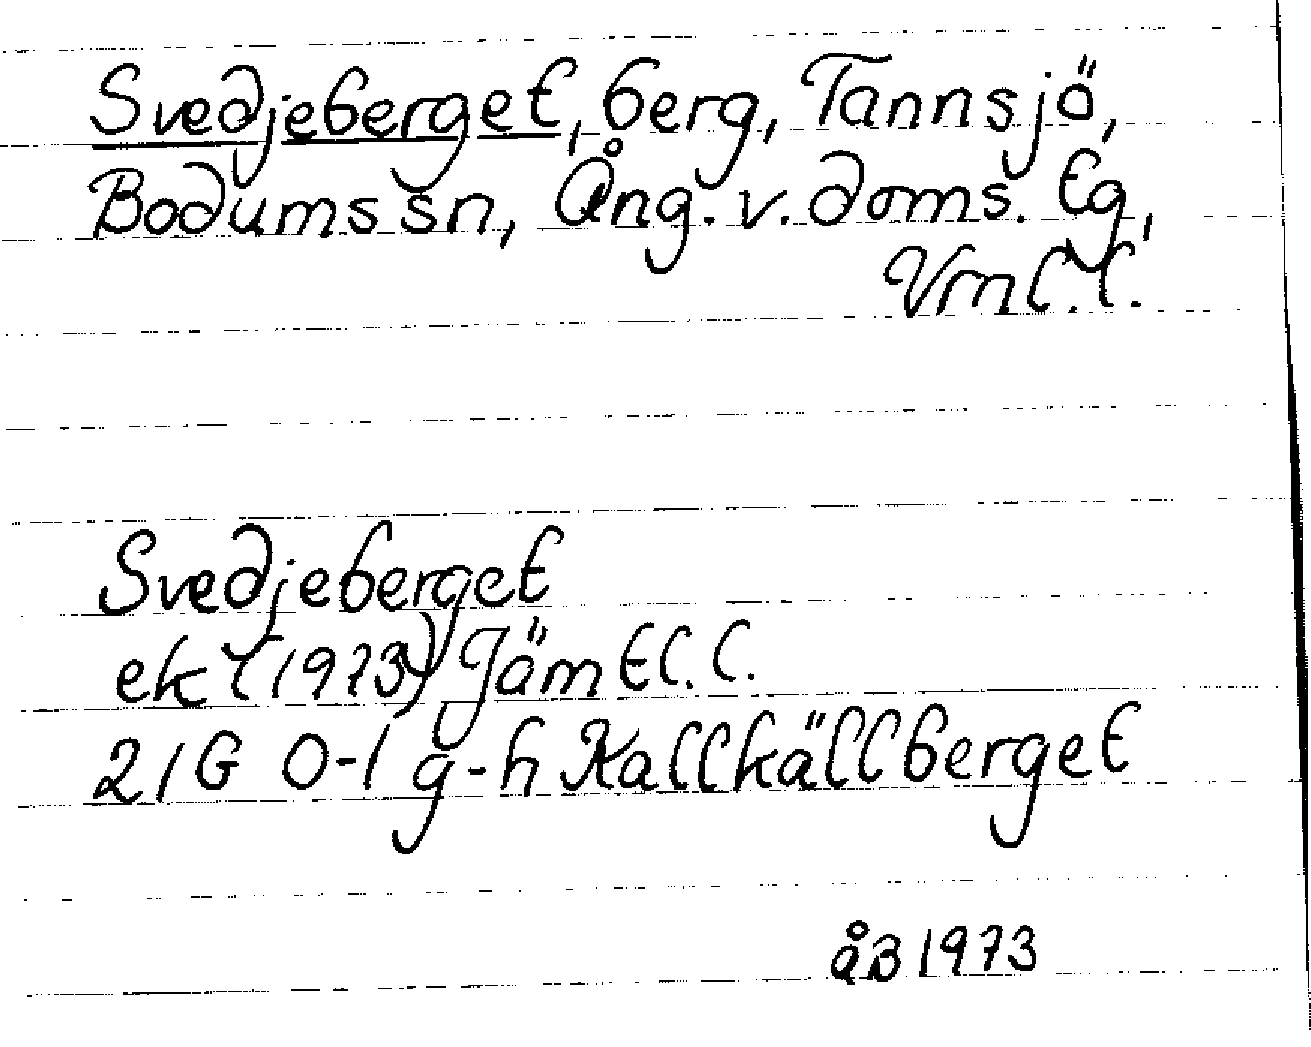 Svedjeberget, berg, Tannsjö,
Bodums sn, Ång. v. doms. tg,
Vrnl.l.
Svedjeberget
ek (1973) Jämtl.l.
21G 0-1 g-h Kallkällberget
åB 1973